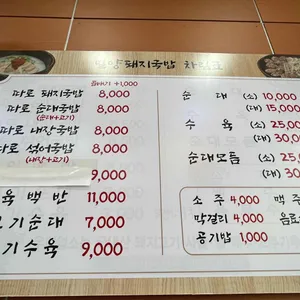 밀양돼지국밥 차림표
곱빼기 +1,000
따로 돼지국밥 8,000
따로 순대국밥 8,000
(순대+고기)
따로 내장국밥 8,000
따로 섞어국밥 8,000
(내장+고기)
9,000
육 백 반 11,000
고기순대 7,000
기수육 9,000
순 대 (소) 10,000
(대) 15,000
수 육 (소) 25,00
(대) 30,00
순대모듬 (소) 25,
(대) 30
소 주 4,000 맥 주
막걸리 4,000 음료
공기밥 1,000